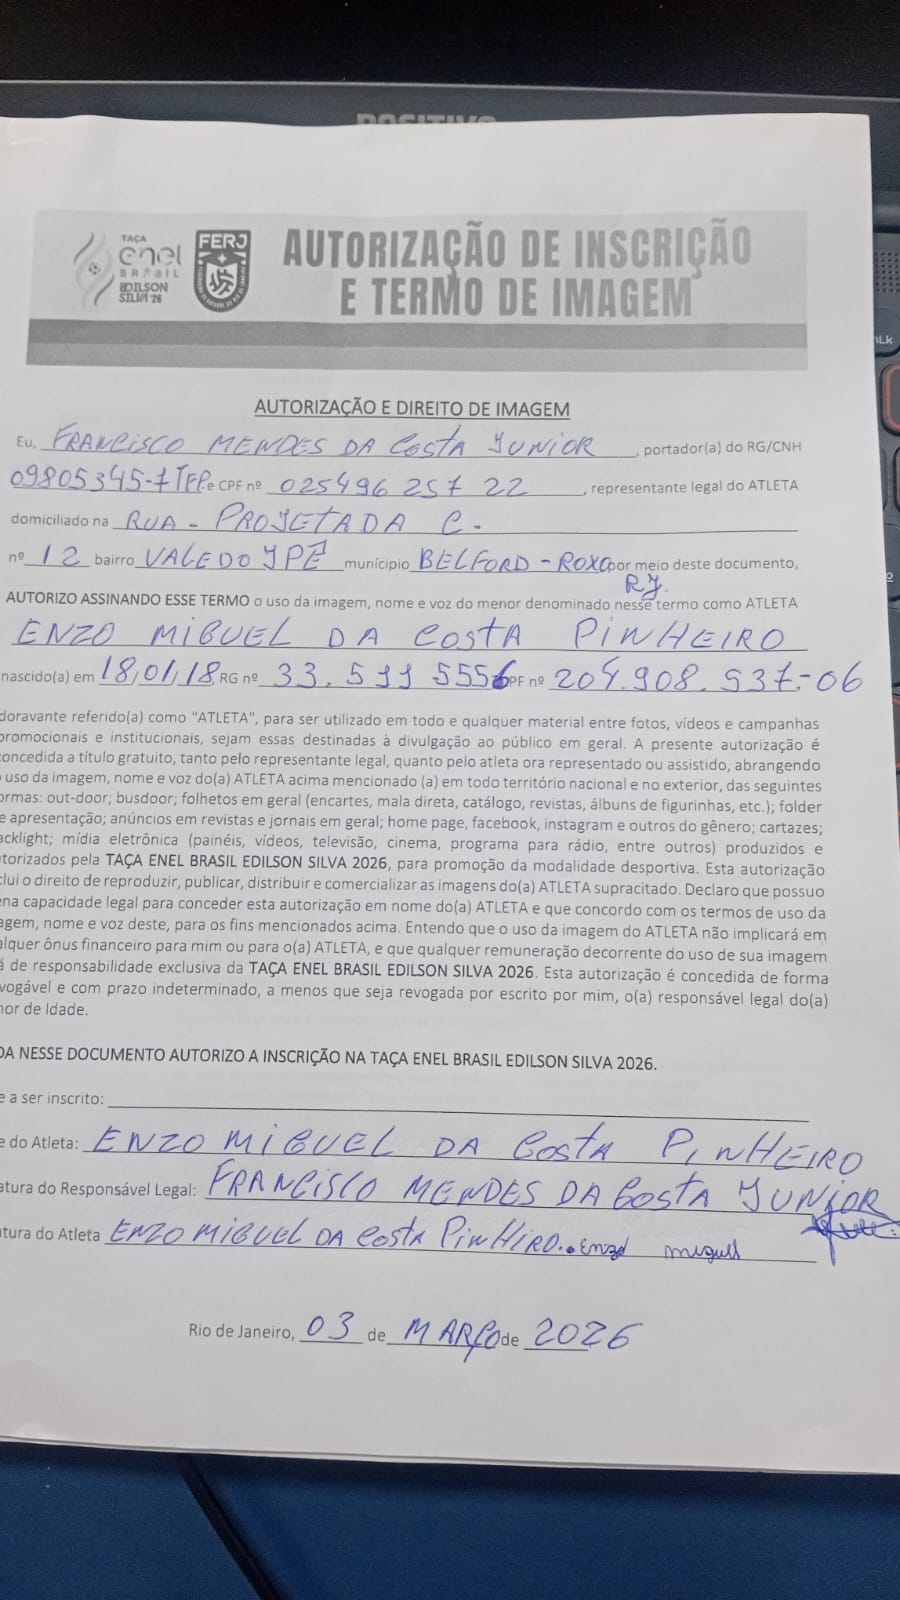 POSITIVO
TAÇA
enel
BRASIL
EDILSON
SILVA '26
FERJ
AUTORIZAÇÃO DE INSCRIÇÃO
E TERMO DE IMAGEM
nLk
AUTORIZAÇÃO E DIREITO DE IMAGEM
Eu, FRANCISCO MENDES DA COSTA JUNIOR, portador(a) do RG/CNH
09805345-7 e CPF nº 025496 257 22, representante legal do ATLETA
domiciliado na RUA - PROJETADA C.
nº 12 bairro VALE DO YPÊ munícipio BELFORD - ROXO por meio deste documento,
RJ.
AUTORIZO ASSINANDO ESSE TERMO o uso da imagem, nome e voz do menor denominado nesse termo como ATLETA
ENZO MIGUEL DA COSTA PINHEIRO
nascido(a) em 18/01/18, RG nº 33.511 5556 PF nº 204.908.537-06
doravante referido(a) como "ATLETA", para ser utilizado em todo e qualquer material entre fotos, vídeos e campanhas
promocionais e institucionais, sejam essas destinadas à divulgação ao público em geral. A presente autorização é
concedida a título gratuito, tanto pelo representante legal, quanto pelo atleta ora representado ou assistido, abrangendo
o uso da imagem, nome e voz do(a) ATLETA acima mencionado (a) em todo território nacional e no exterior, das seguintes
ormas: out-door; busdoor; folhetos em geral (encartes, mala direta, catálogo, revistas, álbuns de figurinhas, etc.); folder
e apresentação; anúncios em revistas e jornais em geral; home page, facebook, instagram e outros do gênero; cartazes;
acklight; mídia eletrônica (painéis, vídeos, televisão, cinema, programa para rádio, entre outros) produzidos e
torizados pela TAÇA ENEL BRASIL EDILSON SILVA 2026, para promoção da modalidade desportiva. Esta autorização
clui o direito de reproduzir, publicar, distribuir e comercializar as imagens do(a) ATLETA supracitado. Declaro que possuo
ena capacidade legal para conceder esta autorização em nome do(a) ATLETA e que concordo com os termos de uso da
agem, nome e voz deste, para os fins mencionados acima. Entendo que o uso da imagem do ATLETA não implicará em
alquer ônus financeiro para mim ou para o(a) ATLETA, e que qualquer remuneração decorrente do uso de sua imagem
á de responsabilidade exclusiva da TAÇA ENEL BRASIL EDILSON SILVA 2026. Esta autorização é concedida de forma
vogável e com prazo indeterminado, a menos que seja revogada por escrito por mim, o(a) responsável legal do(a)
nor de Idade.
DA NESSE DOCUMENTO AUTORIZO A INSCRIÇÃO NA TAÇA ENEL BRASIL EDILSON SILVA 2026.
e a ser inscrito:
e do Atleta: ENZO MIGUEL DA COSTA PINHEIRO
atura do Responsável Legal: FRANCISCO MENDES DA COSTA JUNIOR
atura do Atleta ENZO MIGUEL DA COSTA PINHIRO. Enzo miguel
Rio de Janeiro, 03 de MARÇO de 2026